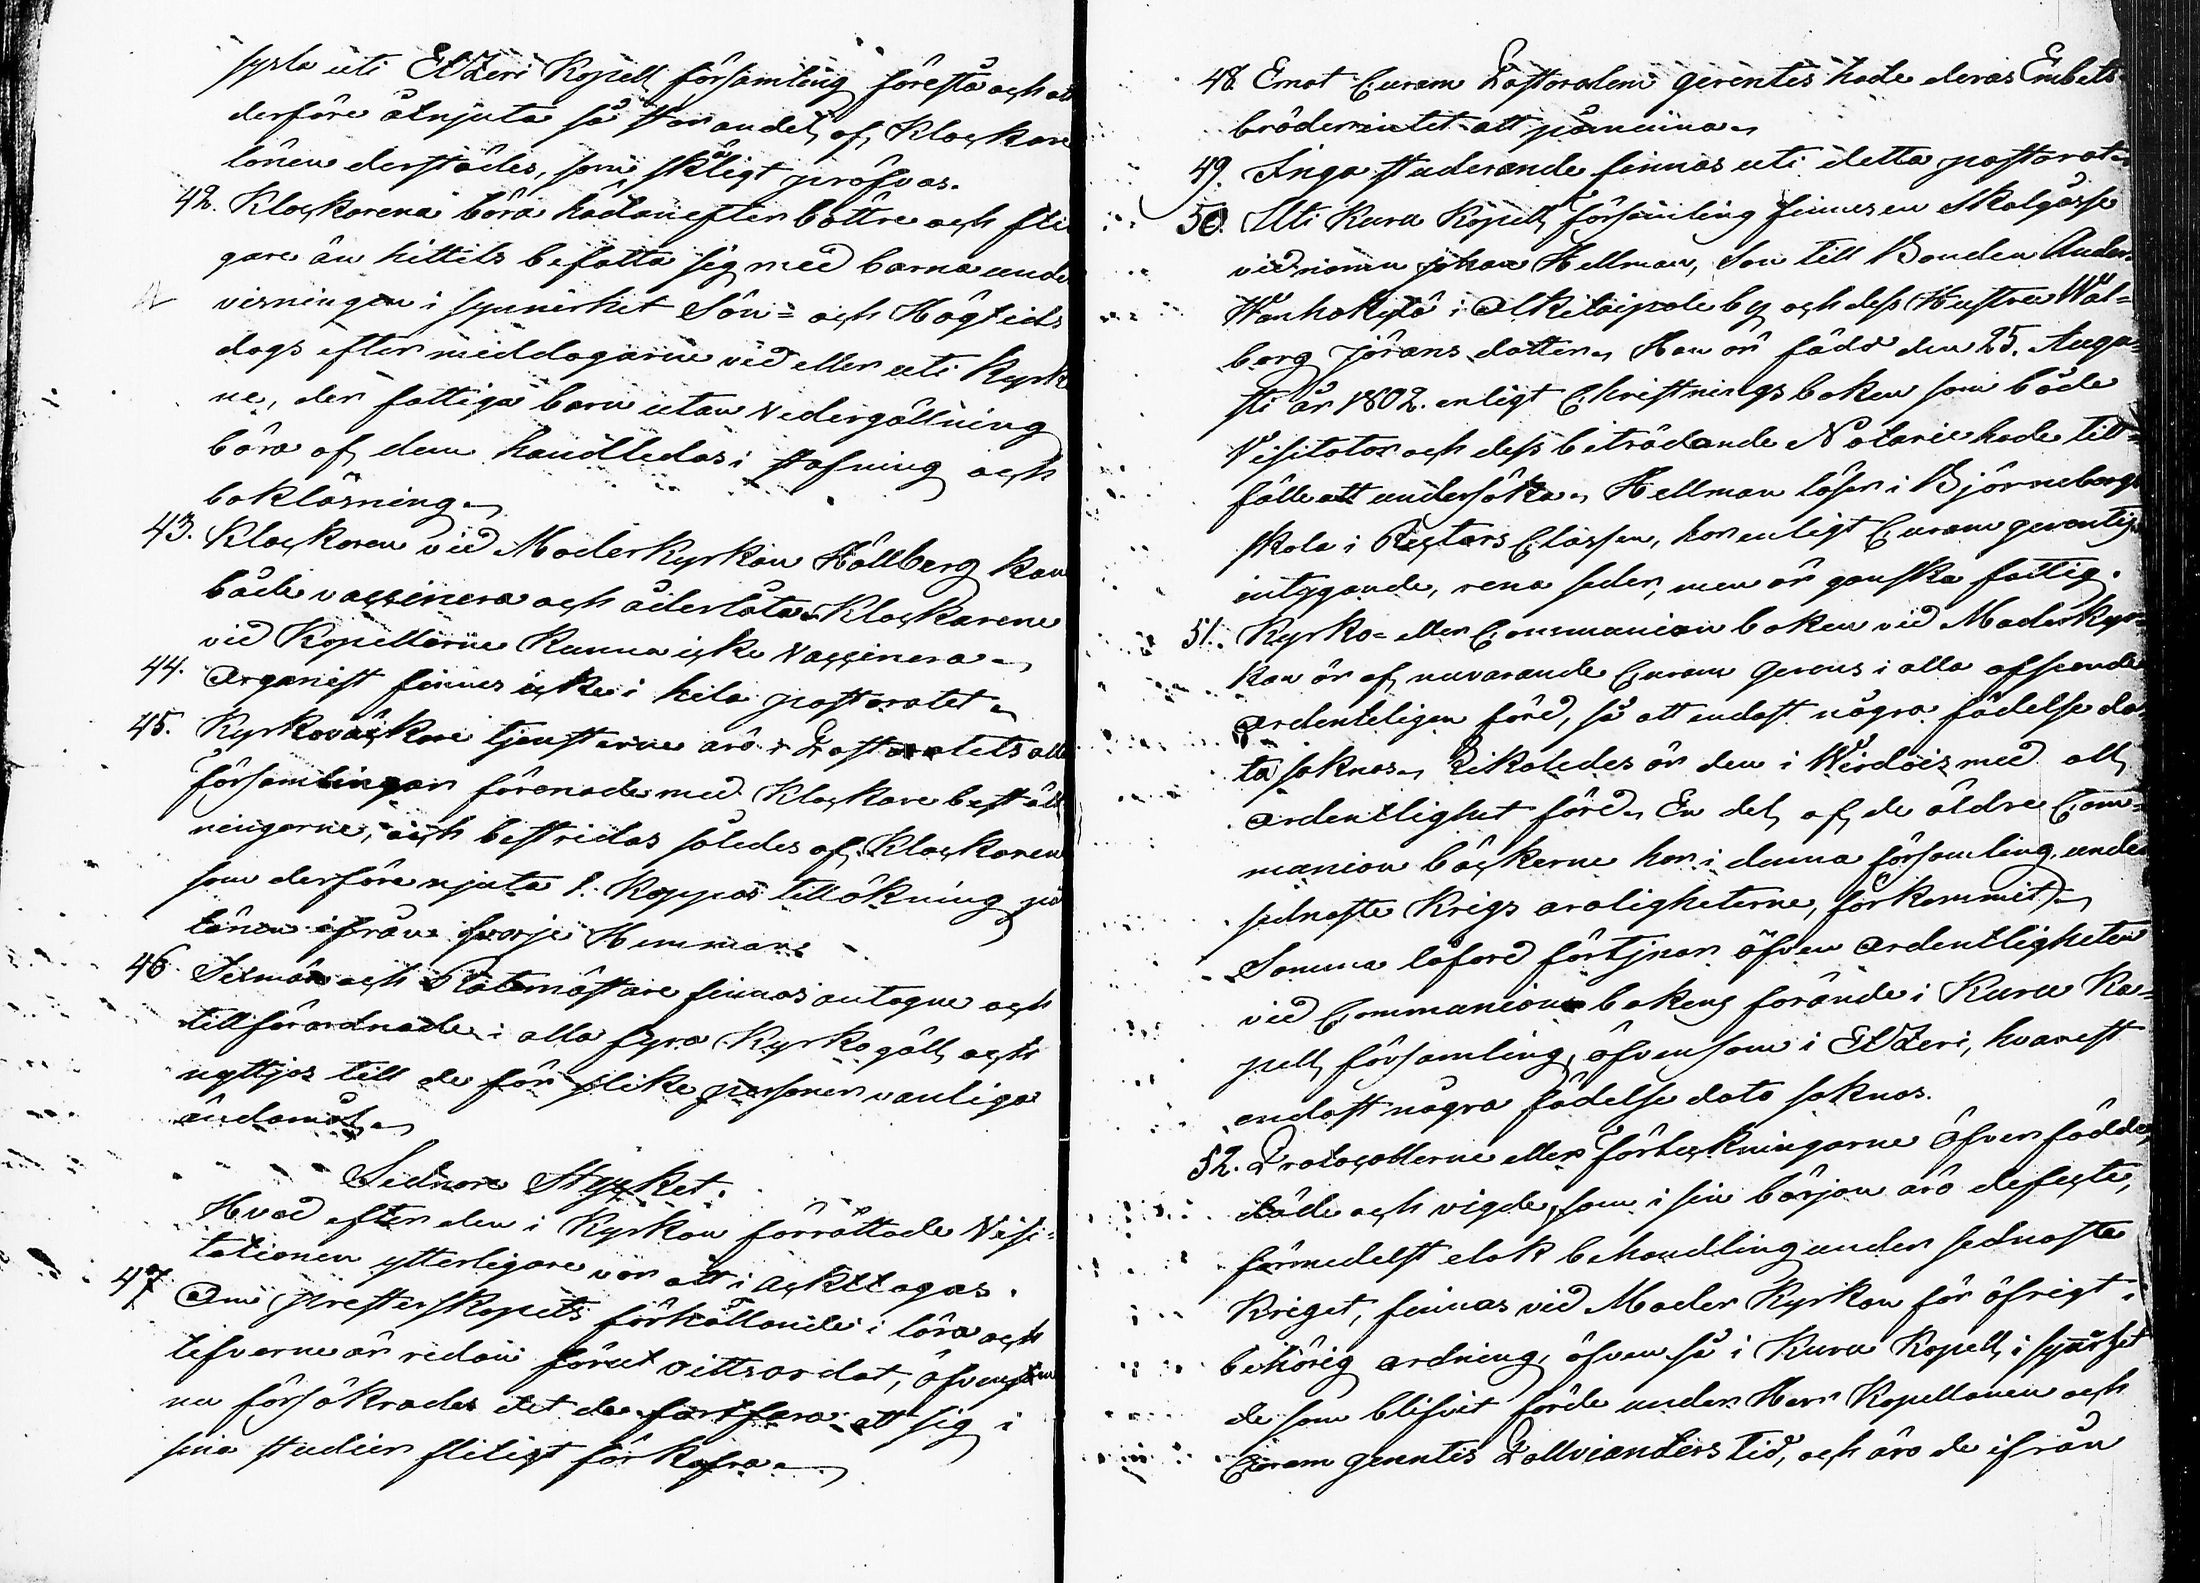 sysla uti Etzeri Kapell församling förestå och at
derföre åtnjuta så stor andel af Klockare
lönen derstädes, som skäligt pröfvas.
42. Klockarena böra hädanefter bättre och fli
gare än hittils befatta sig med barna unde
visningen i synnerhet Sön- och Högtids
dags eftermiddagarne vid eller uti Kyrk
ne, der fattiga barn utan vedergällning
böra af dem handledas i stafning och
bokläsning.
43. Klockaren vid Moderkyrkan Hällberg kan
både vaccinera och åderlåta. Klockarene
vid Kapellerne kunna icke vaccinera.
44. Organist finnes icke i hela pastoratet.
45. Kyrkoväktare tjensterne äro i Pastoratets alla
församlingar förenade med Klockare beställ
ningarne, och bestridas således af Klockaren
som derföre njuta 1. Kappas tillökning på
lönen ifrån hvarje Hemman.
46 Sexmän och Rotemästare finnas antagne och
tillförordnade i alla fyra Kyrkogäll, och
nyttjas till de för slike personer vanliga
ändamål.
Sednare Stycket.
Hvad efter den i Kyrkan förrättade Visi-
tationen ytterligare var att i ackttagas.
47 Om presterskapets förhållande i lära och
lefverne är redan förut vittsordat, äfvensom
nu försäkrades det de fortfara att sig i
sina studier flitigt förkofra.
48. Emot Curam Pastoralem gerentis hade deras Embets
bröder intet att påminna.
49. Inga studerande finnas uti detta pastorat.
50. Uti Kuru Kapell församling finnes en Skolgåsse
vid namn Johan Hellman, Son till Bonden Anders
i by och dess Hustru Wal-
borg Jörans dotter. Han är född den 25. Augu-
sti år 1802. enligt Christningsboken som både
Visitator och dess biträdande Notarie hade till-
fälle att undersöka. Hellman läser i Björneborgs
skola i Rectors Classen, har enligt Curam gerentis
intygande, rena seder, men är ganska fattig.
51. Kyrko- eller Communion boken vid Moderkyr-
kan är af nuvarande Curam gerens i alla afseende
ordenteligen förd, så att endast några födelse da-
ta saknas. Likaledes är den i Wirdois med all
ordentlighet förd. En del af de äldre Com-
munion böckerne har i denna församling under
sednaste Krigs oroligheterne, förkommit.
Samma låford förtjenar äfven ordentligheten
vid Communion bokens förande i Kuru Ka-
pell församling, äfvensom i Etzeri, hvarest
endast några födelse data saknas.
52. Protocollerne eller förteckningarne öfver födde,
döde och vigde, som i sin början äro defecte,
förmedelst elak behandling under sednaste
Kriget, finnas vid Moder Kyrkan för öfrigt i
behörig ordning, äfven så i Kuru Kapell, i synnerhet
de som blifvit förde under Herr Kapellanen och
Curam gerentis Pallvianders tid, och äro de ifrån